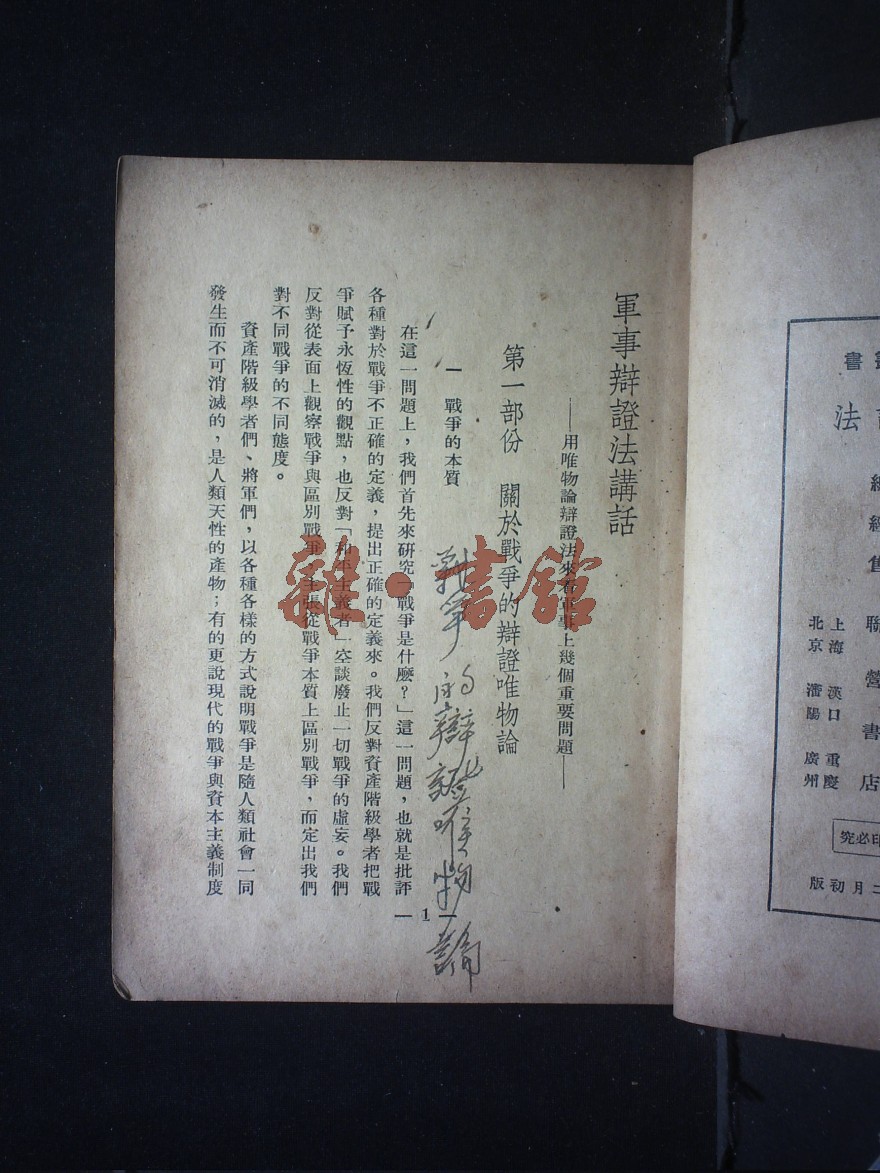 軍事辯證法講話
——用唯物論辯證法來看軍事上幾個重要問題——
第一部份　關於戰爭的辯證唯物論
一　戰爭的本质
戰爭的辯證唯物論
在這一問題上，我們首先來研究「戰爭是什麽？」這一問題，也就是批評
各種對於戰爭不正確的定義，提出正確的定義來。我們反對資產階級學者把戰
爭賦予永恆性的觀點，也反對「和平主義者」空談廢止一切戰爭的虛妄。我們
反對從表面上觀察戰爭與區別戰爭，主張從戰爭本質上區別戰爭，而定出我們
對不同戰爭的不同態度。
資產階級學者們、將軍們，以各種各樣的方式說明戰爭是隨人類社會一同
發生而不可消滅的，是人類天性的產物；有的更說現代的戰爭與資本主義制度
— 1 —
雜·書館
書
法
經
售
聯
營
書
店
上海 漢口 重慶
北京 瀋陽 廣州
印必究
二月初版